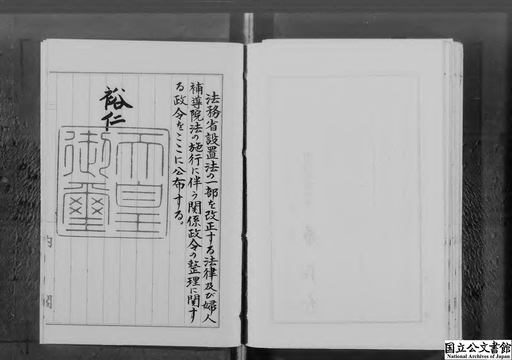 法務省設置法の一部を改正する法律及び婦人
補導院法の施行に伴う関係政令の整理に関す
る政令をここに公布する。
裕仁
天皇
御璽
内閣
国立公文書館
National Archives of Japan